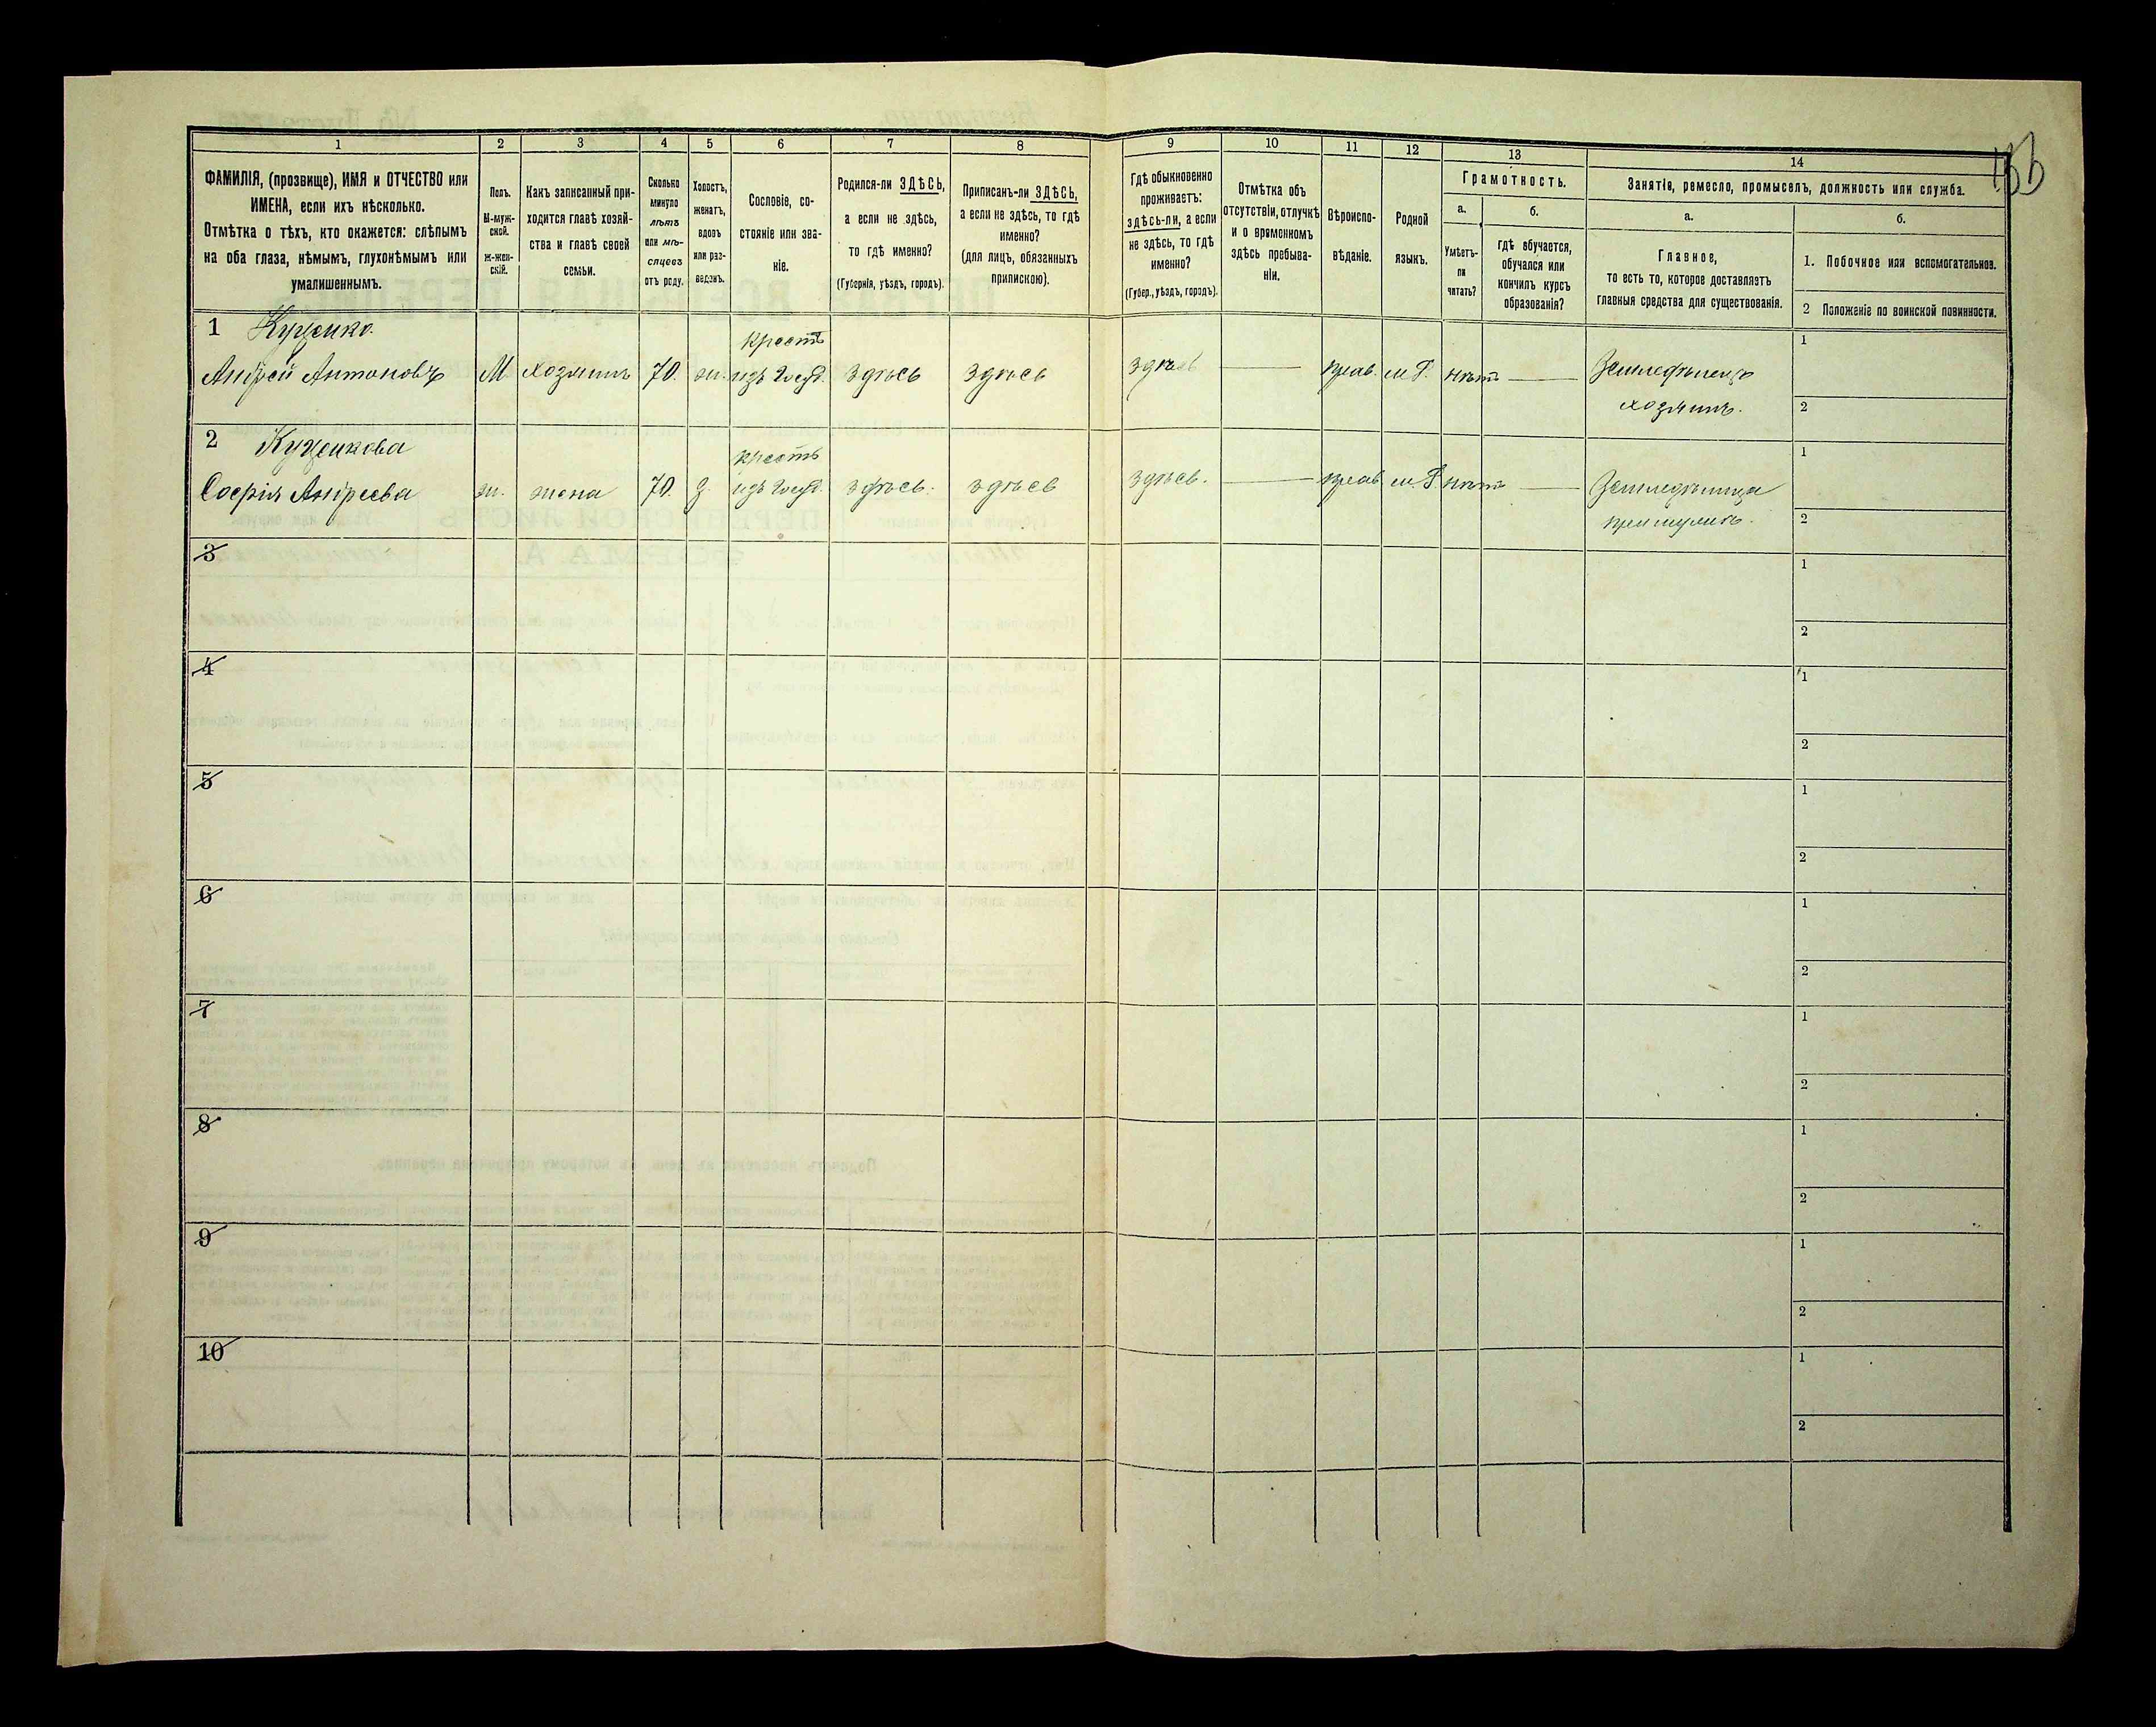 156
1
2
3
4
5
6
7
8
9
10
11
12
13
14
ФАМИЛІЯ, (прозвище), ИМЯ и ОТЧЕСТВО или
ИМЕНА, если ихъ нѣсколько.
Отмѣтка о тѣхъ, кто окажется: слѣпымъ
на оба глаза, нѣмымъ, глухонѣмымъ или
умалишеннымъ.
Полъ.
М-муж-
ской.
Ж-жен-
скій.
Какъ записанный при-
ходится главѣ хозяй-
ства и главѣ своей
семьи.
Сколько
минуло
лѣтъ
или мѣ-
сяцевъ
отъ роду.
Холостъ,
женатъ,
вдовъ
или раз-
веденъ.
Сословіе, со-
стояніе или зва-
ніе.
Родился-ли ЗДѢСЬ,
а если не здѣсь,
то гдѣ именно?
(Губернія, уѣздъ, городъ).
Приписанъ-ли ЗДѢСЬ,
а если не здѣсь, то гдѣ
именно?
(для лицъ, обязанныхъ
припискою).
Гдѣ обыкновенно
проживаетъ:
здѣсь-ли, а если
не здѣсь, то гдѣ
именно?
(Губер., уѣздъ, городъ).
Отмѣтка объ
отсутствіи, отлучкѣ
и о временномъ
здѣсь пребыва-
ніи.
Вѣроиспо-
вѣданіе.
Родной
языкъ.
Грамотность.
а.
Умѣетъ-
ли
читать?
б.
гдѣ обучается,
обучался или
кончилъ курсъ
образованія?
Занятіе, ремесло, промыселъ, должность или служба.
а.
Главное,
то есть то, которое доставляетъ
главныя средства для существованія.
б.
1. Побочное или вспомогательное.
2 Положеніе по воинской повинности.
1 Куценко.
Андрей Антоновъ М хозяинъ 70. ж. крест. изъ госуд. здѣсь здѣсь здѣсь — прав. м.Р. нѣтъ — Земледѣлецъ
хозяинъ.
1
2
2 Куценкова
Софія Андреева ж. жена 70. з. крестъ изъ госуд. здѣсь. здѣсь здѣсь. — прав. м.Р. нѣтъ — Земледѣлица
при мужѣ.
1
2
3
1
2
4
1
2
5
1
2
6
1
2
7
1
2
8
1
2
9
1
2
10
1
2